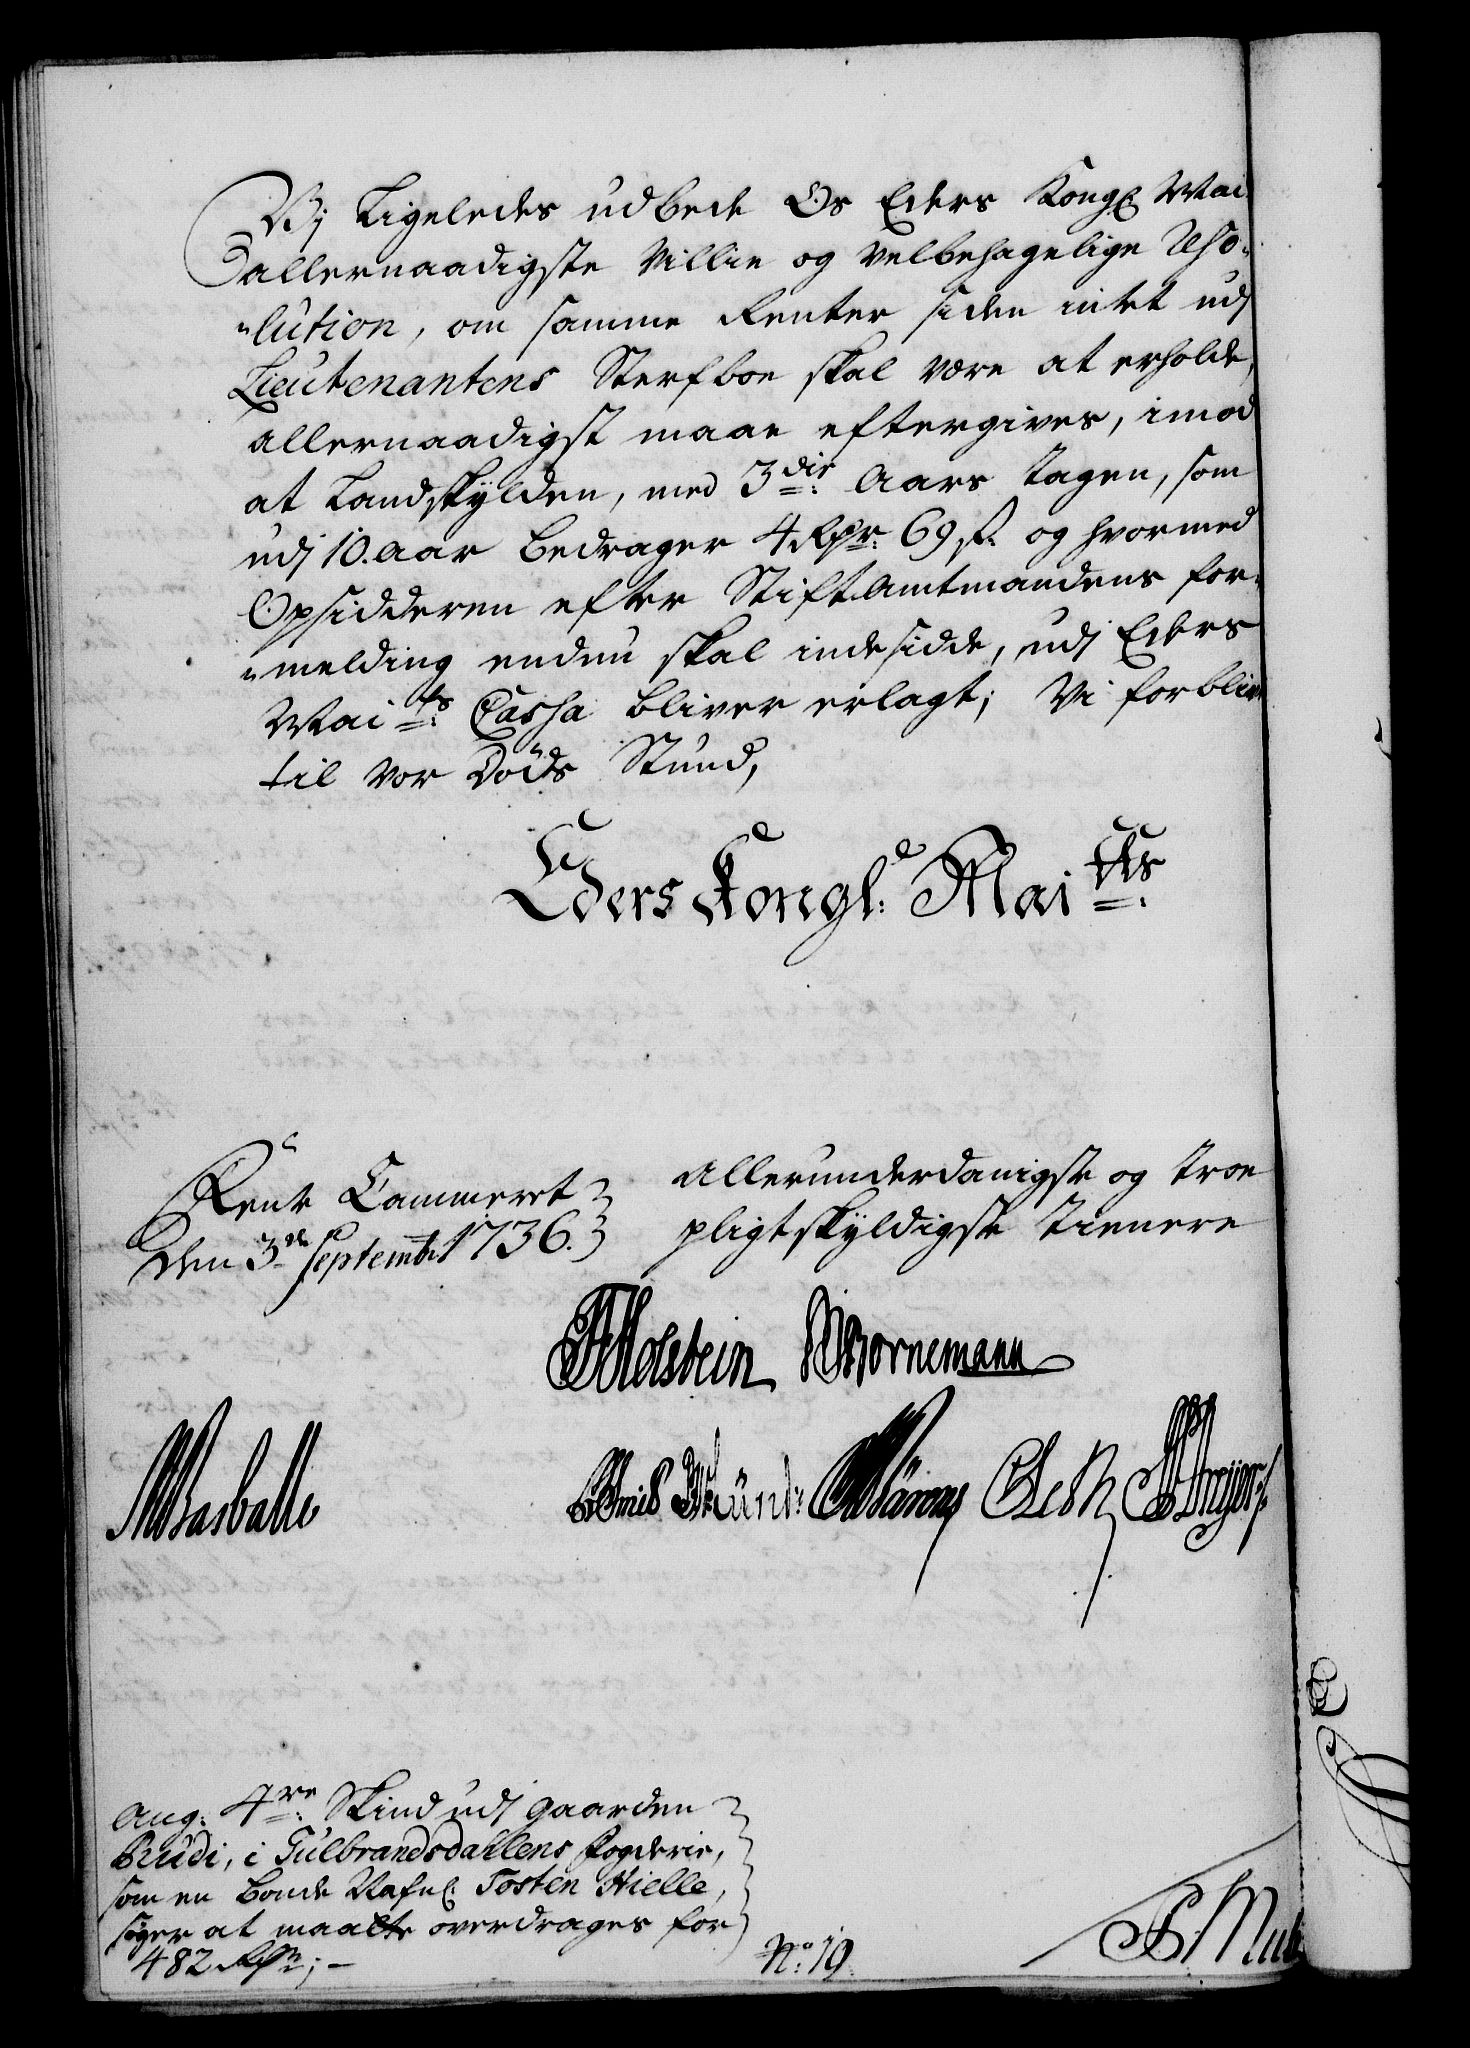 Vj ligeledes udbede Os Eders Kongl Mai
allernaadigste Villie og velbehagelige Reso-
-lution, om samme Renter siden intet udj
Lieutenantens Sterfboe skal være at erholde,
allernaadigst maae eftergives, imod
at Landskylden, med 3die Aars tagen, som
udj 10. aar bedrager 4 Rdr: 69 s. og hvormed
Opsidderen efter Stiftamtmandens for-
-melding endnu skal indesidde, udj Eders
Maits: Cassa bliver erlagt; Vi forblive
til vor Døds Stund,
Eders Kongl: Maitts:
Rente Cammeret
den 3de Septembr 1736.
Allerunderdanigste og troe
pligtskyldigste tienere
Holstein Bornemann
Basballe
Dreyer
ang: 4re: Skind udj gaarden
Rudi, i Gulbrandsdahlens fogderie,
som en bonde Nafnl. Tosten Hielle,
siger at maatte overdrages for
482 Rdr; -
No: 19